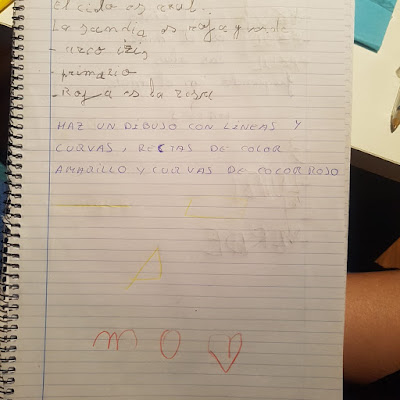 el cielo es azul.
La sandia es roja y verde
- arco iris
- primario
- Roja es la rosa
HAZ UN DIBUJO CON LÍNEAS Y
CURVAS, RECTAS DE COLOR
AMARILLO Y CURVAS DE COLOR ROJO
m O D